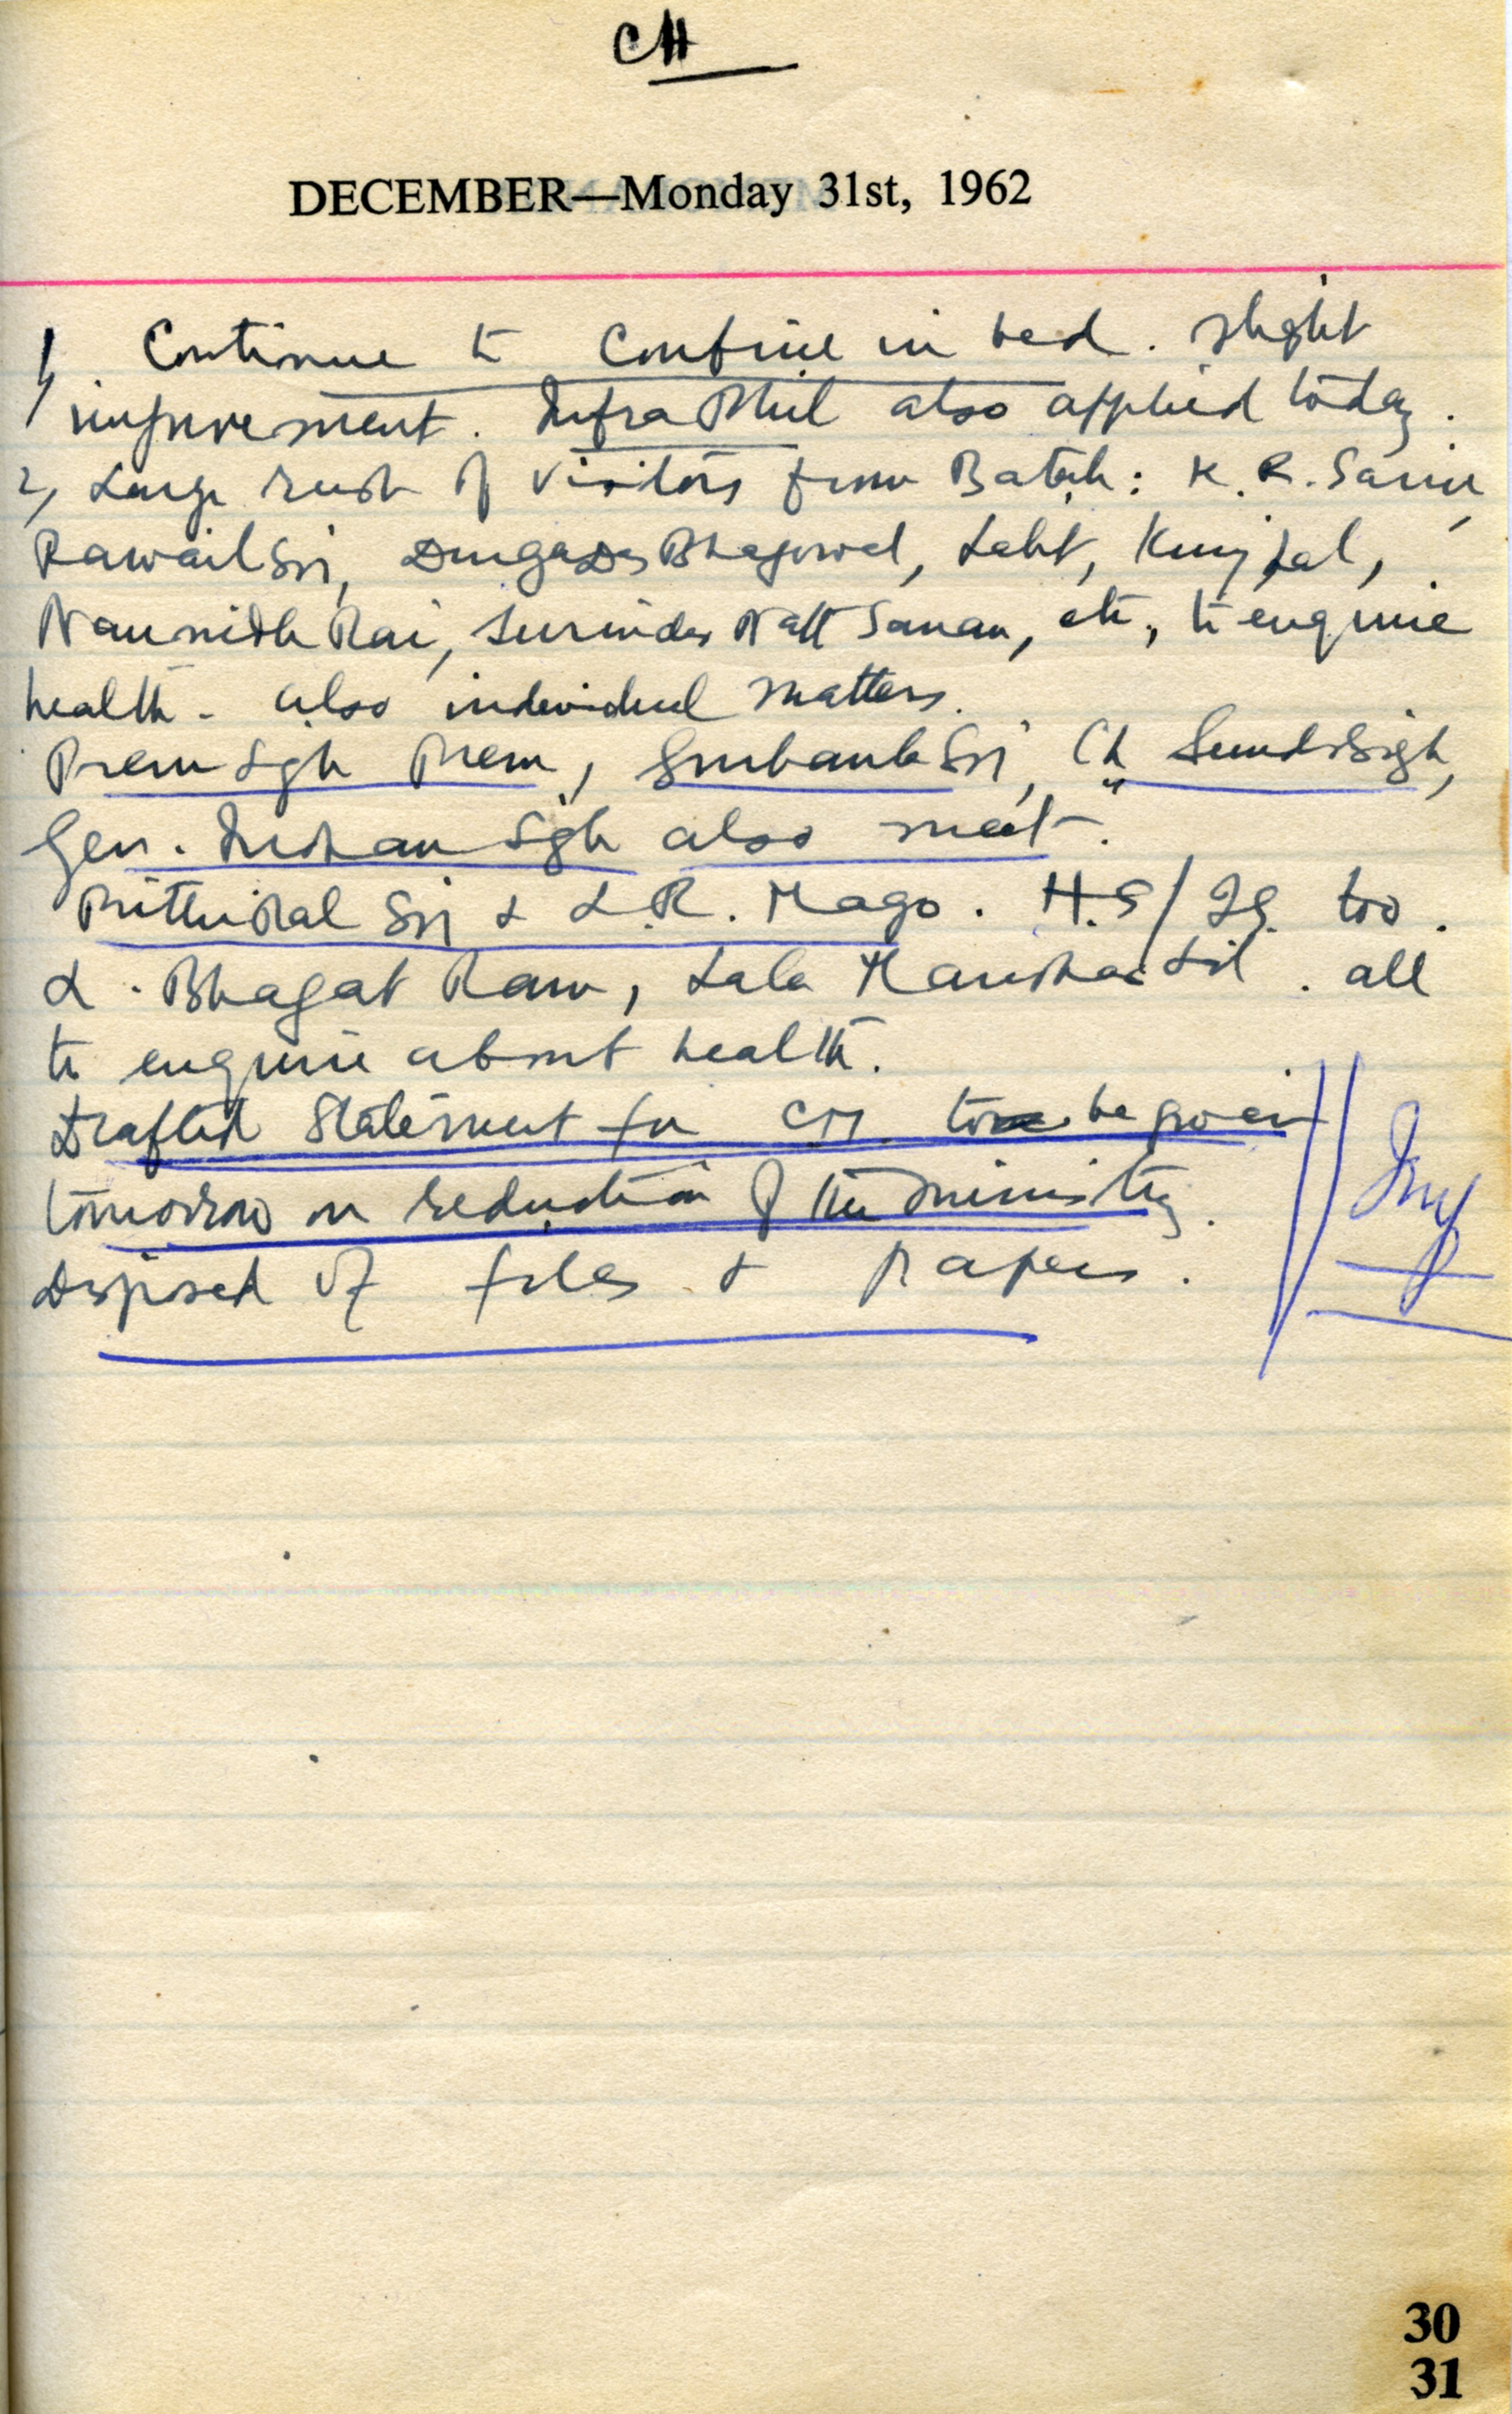 CH
DECEMBER—Monday 31st, 1962
1) Continue to confine in bed. Slight
improvement. Infra Phil also applied today.
2) Large rush of visitors from Batala: K. R.
Rawail Sgh, Durga Das Bhagowal, Lalit, Kunj Lal,
Naunidh Rai, Surinder Natt Sanan, etc, to enquire
health - also individual matters.
Prem Sgh Prem, Gurbanta Sgh, Ch Sunder Sigh,
Gen. Mohan Sgh also meet.
Prithipal Sgh & L. R. Mago. H.S/IG. too.
L. Bhagat Ram, Lala Manohar Lal. all
to enquire about health.
Drafted Statement for CM. to be given
tomorrow on reduction of the ministry.
Disposed of files & papers.
Imp
30
31